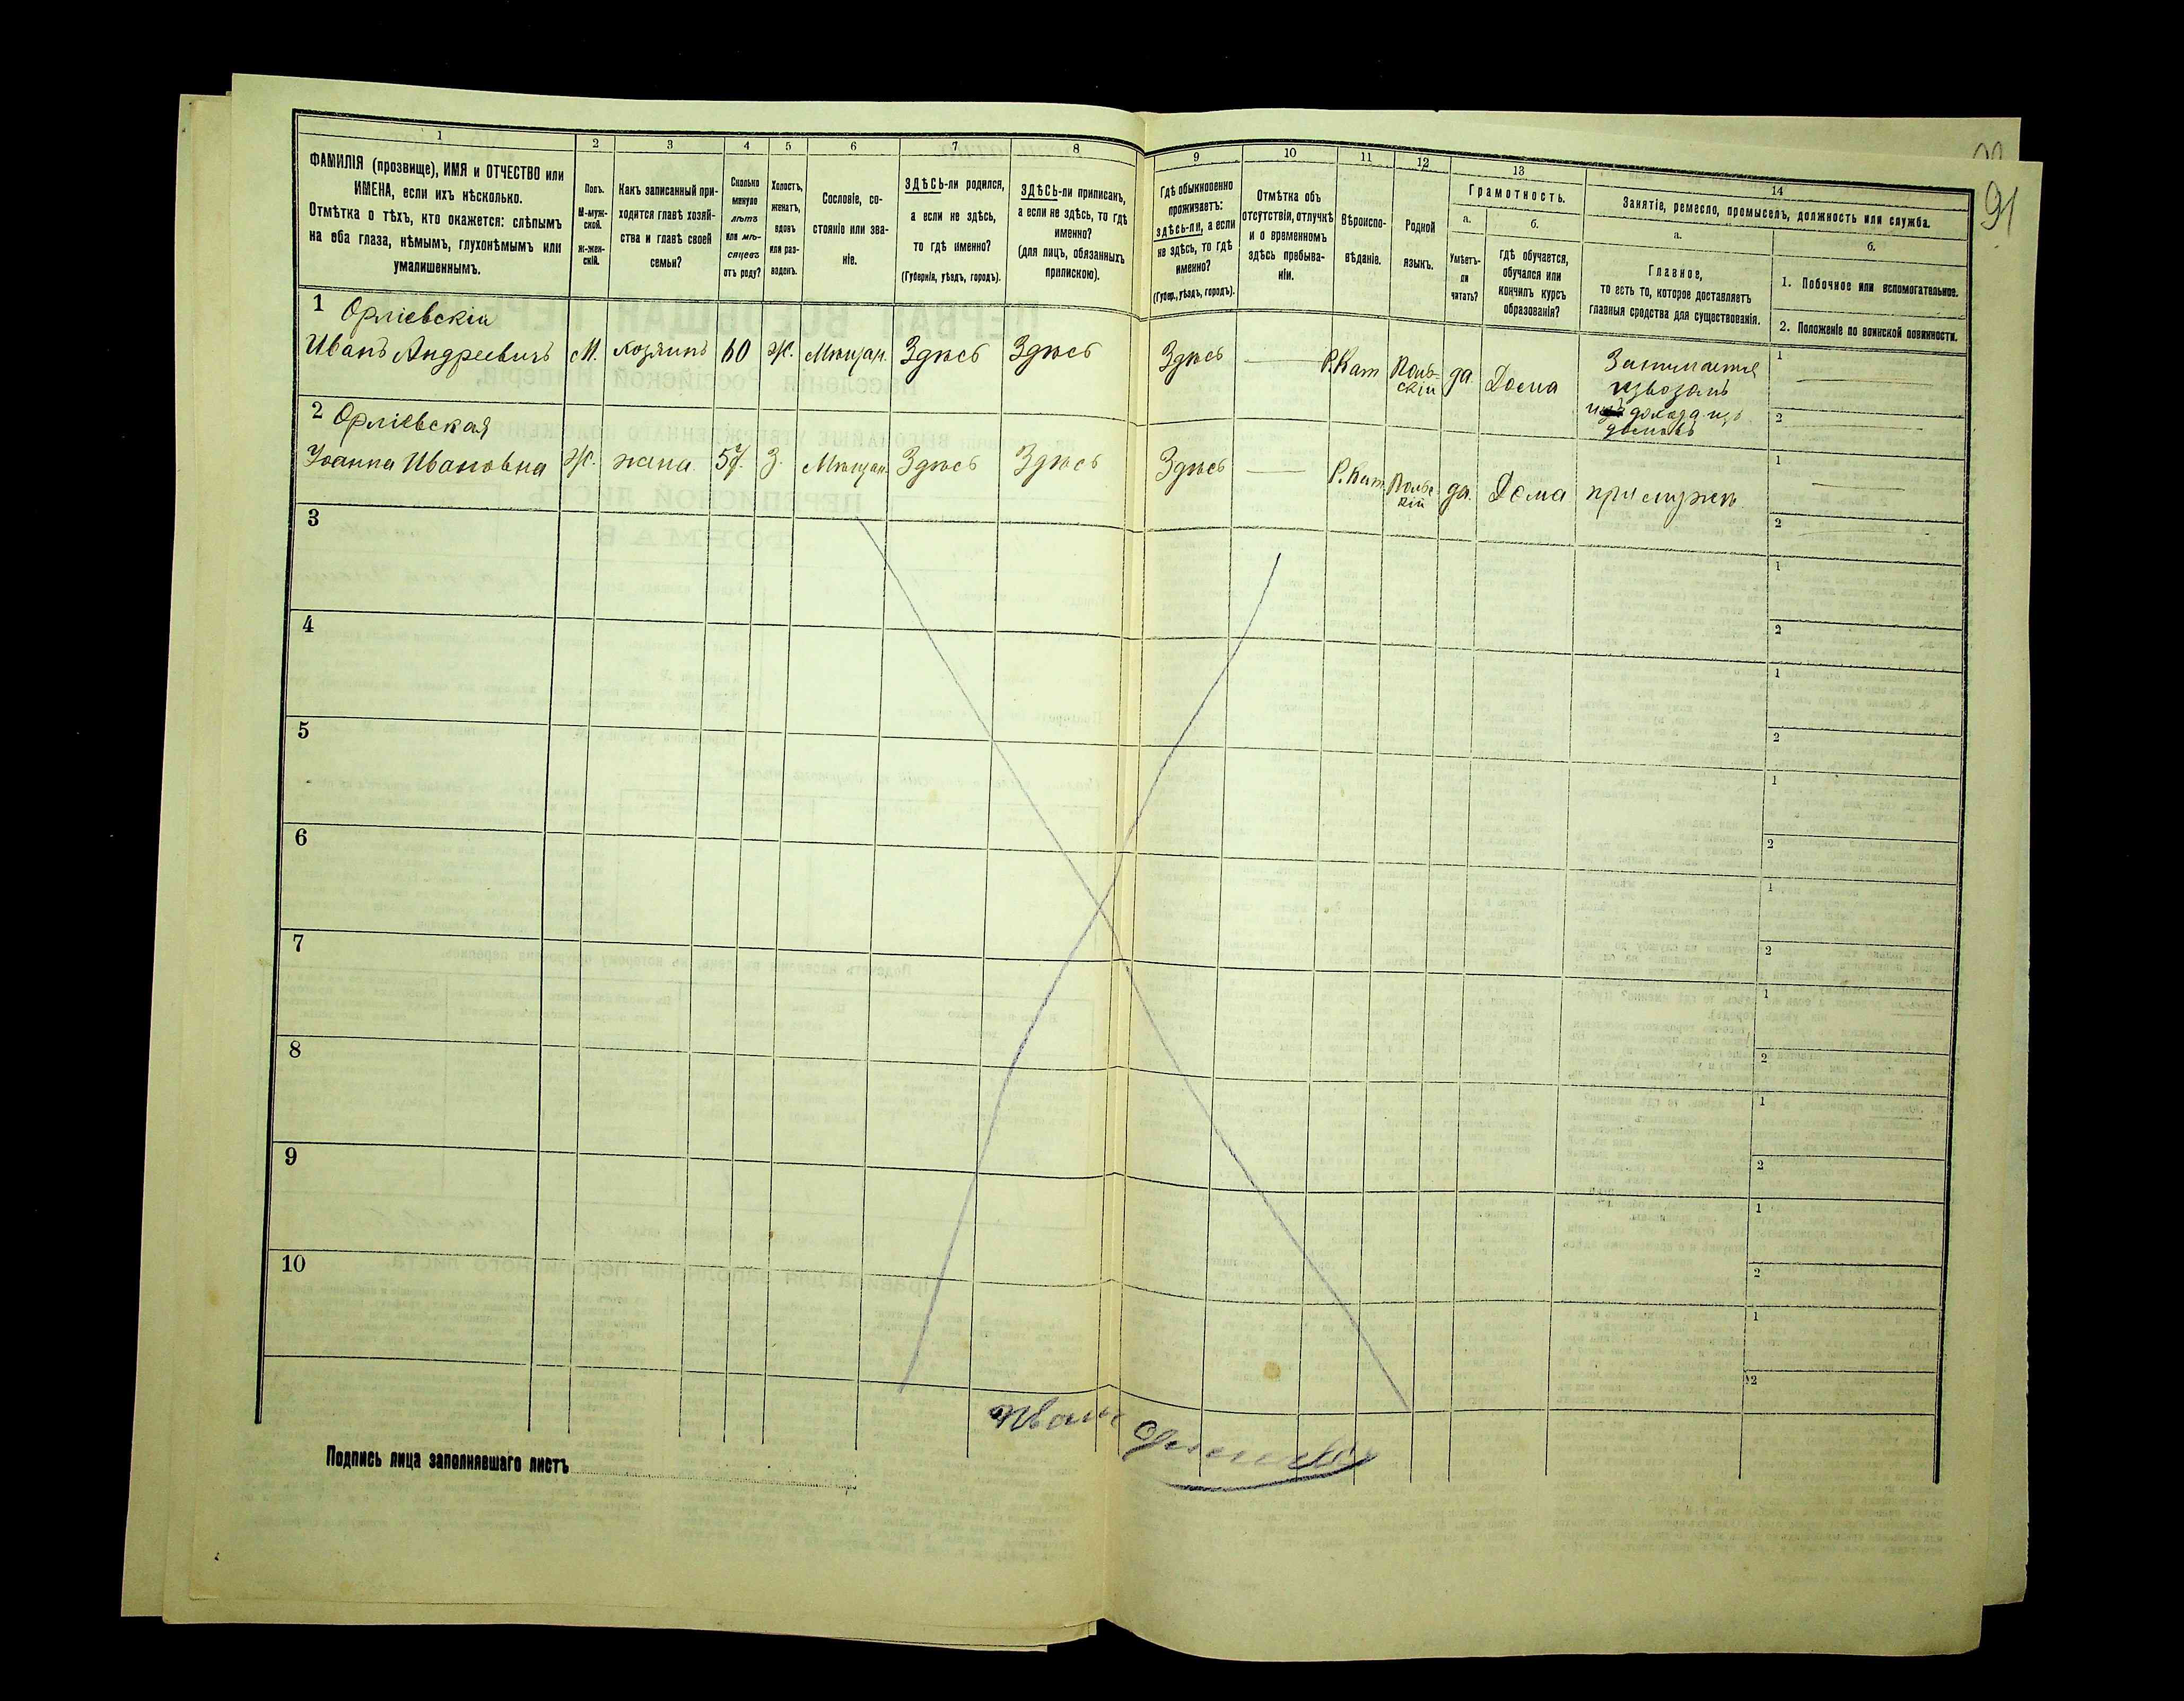 91
1 2 3 4 5 6 7 8 9 10 11 12 13 14
ФАМИЛІЯ (прозвище), ИМЯ и ОТЧЕСТВО или
ИМЕНА, если ихъ нѣсколько.
Отмѣтка о тѣхъ, кто окажется: слѣпымъ
на оба глаза, нѣмымъ, глухонѣмымъ или
умалишеннымъ.
Полъ.
М-муж-
ской.
Ж-жен-
скій.
Какъ записанный при-
ходится главѣ хозяй-
ства и главѣ своей
семьи?
Сколько
минуло
лѣтъ
или мѣ-
сяцевъ
отъ роду?
Холостъ,
женатъ,
вдовъ
или раз-
веденъ.
Сословіе, со-
стояніе или зва-
ніе.
ЗДѢСЬ-ли родился,
а если не здѣсь,
то гдѣ именно?
(Губернія, уѣздъ, городъ).
ЗДѢСЬ-ли приписанъ,
а если не здѣсь, то гдѣ
именно?
(для лицъ, обязанныхъ
припискою).
Гдѣ обыкновенно
проживаетъ:
здѣсь-ли, а если
не здѣсь, то гдѣ
именно?
(Губер., уѣздъ, городъ).
Отмѣтка объ
отсутствіи, отлучкѣ
и о временномъ
здѣсь пребыва-
ніи.
Вѣроиспо-
вѣданіе.
Родной
языкъ.
Грамотность.
а.
Умѣетъ-
ли
читать?
б.
гдѣ обучается,
обучался или
кончилъ курсъ
образованія?
Занятіе, ремесло, промыселъ, должность или служба.
а.
Главное,
то есть то, которое доставляетъ
главныя средства для существованія.
б.
1. Побочное или вспомогательное.
2. Положеніе по воинской повинности.
1 Орліевскій
Иванъ Андреевичъ М. хозяинъ 60 Ж. Мѣщан. Здѣсь Здѣсь Здѣсь — Р.Кат Поль-
скій да. Дома Занимается
извозомъ
дохода изъ
домовъ
1
2
2 Орліевская
Іоанна Ивановна Ж. жена 57. З. Мѣщан. Здѣсь Здѣсь Здѣсь — Р.Кат Польс
кій да. Дома при мужѣ
1
2
3
1
2
4
1
2
5
1
2
6
1
2
7
1
2
8
1
2
9
1
2
10
1
2
Подпись лица заполнявшаго листъ
Иванъ